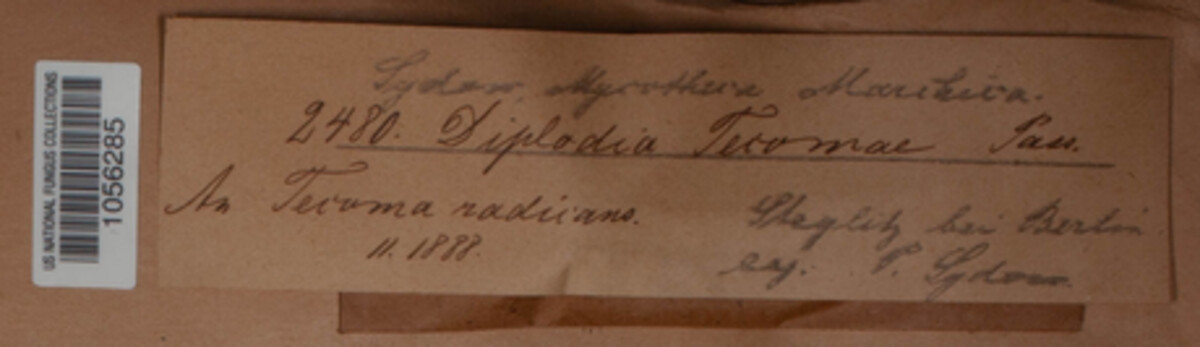 US NATIONAL FUNGUS COLLECTIONS
1056285
Sydow, Mycotheca Marchica.
2480. Diplodia Tecomae Pass.
An Tecoma radicans.
11. 1888.
Steglitz bei Berlin
leg. P. Sydow